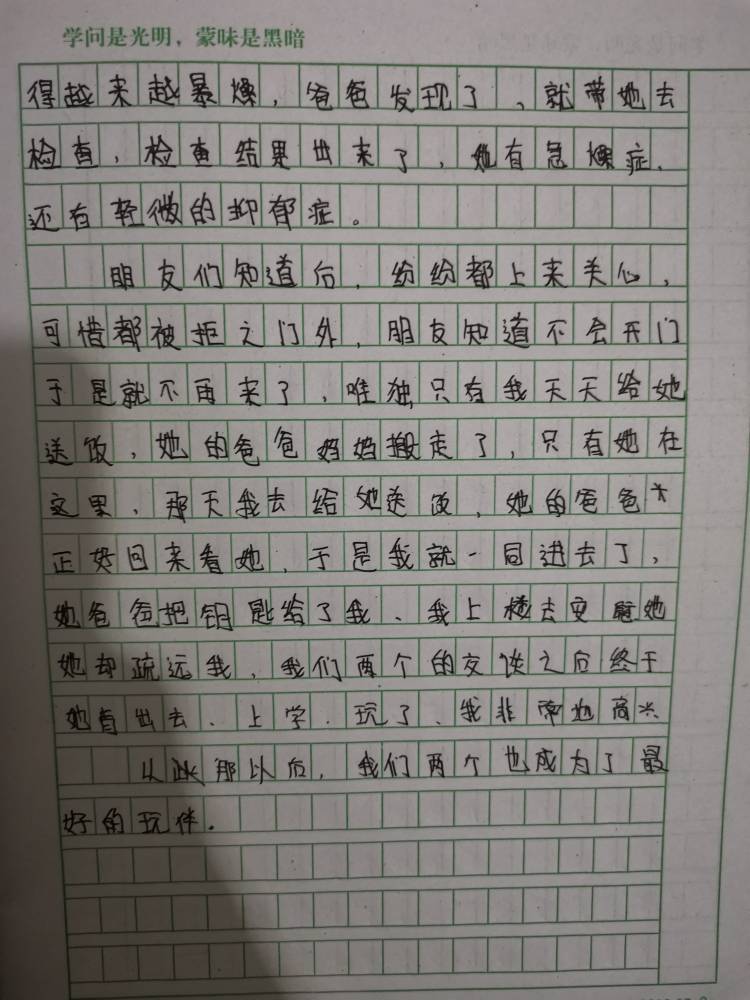 学问是光明，蒙昧是黑暗
得越来越暴燥，爸爸发现了，就带她去
检查，检查结果出来了，她有急燥症，
还有轻微的抑郁症。
朋友们知道后，纷纷都上来关心，
可惜都被拒之门外，朋友知道不会开门
于是就不再来了，唯独只有我天天给她
送饭，她的爸爸妈妈搬走了，只有她在
这里，那天我去给她送饭，她的爸爸
正好回来看她，于是我就一同进去了，
她爸爸把钥匙给了我、我上楼去安慰她
她却疏远我，我们两个的交谈之后终于
她肯出去、上学、玩了、我非常地高兴
从此那以后，我们两个也成为了最
好的玩伴.